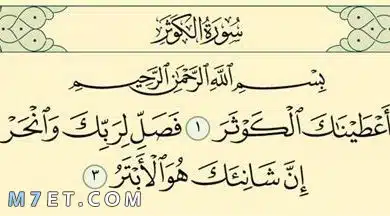 سُورَةُ الكَوْثَرِ
بِسْمِ اللَّهِ الرَّحْمَٰنِ الرَّحِيمِ
أَعْطَيْنَاكَ الْكَوْثَرَ ١ فَصَلِّ لِرَبِّكَ وَانْحَرْ
إِنَّ شَانِئَكَ هُوَ الْأَبْتَرُ ٣
M7ET.COM